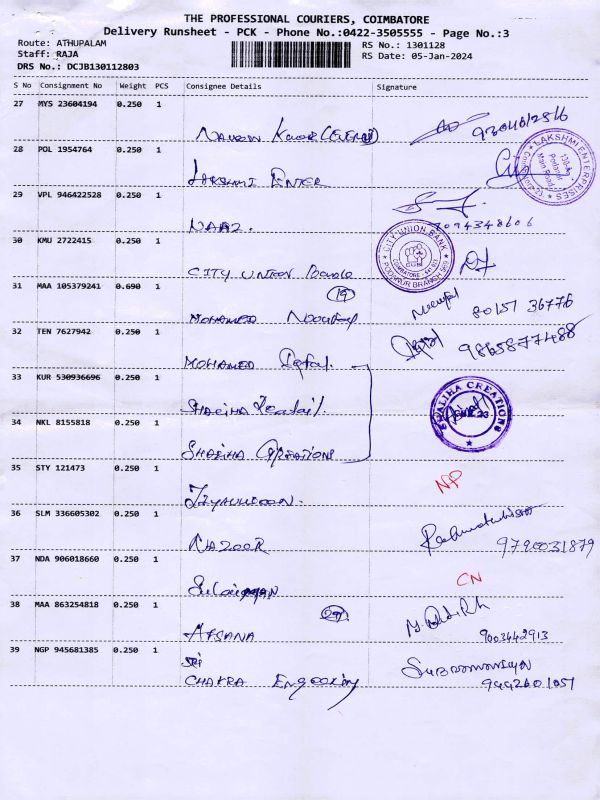 THE PROFESSIONAL COURIERS, COIMBATORE
Delivery Runsheet - PCK - Phone No.:0422-3505555 - Page No.:3
Route: ATHUPALAM
RS No.: 1301128
Staff: RAJA
RS Date: 05-Jan-2024
DRS No.: DCJB130112803
S No Consignment No Weight PCS Consignee Details Signature
27 MYS 23604194 0.250 1
28 POL 1954764 0.250 1
LAKSHMI ENTER
LAKSHMI ENTERPRISES
29 VPL 946422528 0.250 1
NAAZ.
7094348606
30 KMU 2722415 0.250 1
CITY UNION
CITY UNION BANK
COIMBATORE
PODANUR BRANCH
31 MAA 105379241 0.690 1
19
MOHAMED
80151 36776
32 TEN 7627942 0.250 1
MOHAMED Iqfal.
9865877488
33 KUR 530936696 0.250 1
SHALIHA
SHALIHA CREATIONS
34 NKL 8155818 0.250 1
SHALIHA CREATIONS
35 STY 121473 0.250 1
NP
36 SLM 336605302 0.250 1
NAZEER
9790031879
37 NDA 906018660 0.250 1
Sulaiman
CN
38 MAA 863254818 0.250 1
AFSANA
9003442913
39 NGP 945681385 0.250 1
SRI
CHAKRA
Subramaniyan
9442601051